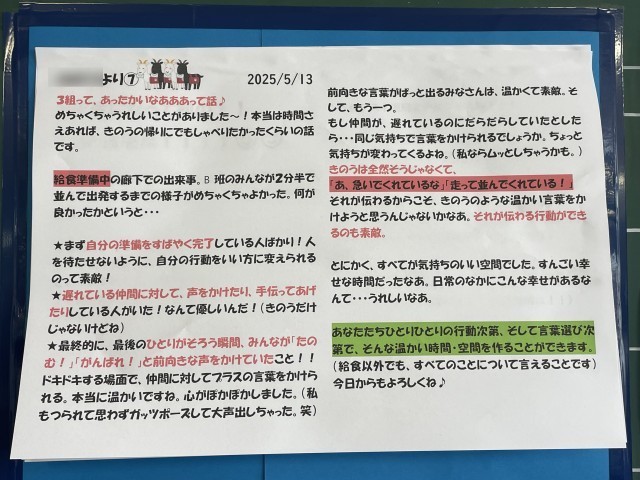 より⑦
2025/5/13
3組って、あったかいなあああって話♪
めちゃくちゃうれしいことがありました~！本当は時間さ
えあれば、きのうの帰りにでもしゃべりたかったくらいの話
です。
給食準備中の廊下での出来事。B 班のみんなが2分半で
並んで出発するまでの様子がめちゃくちゃよかった。何が
良かったかというと・・・
★まず自分の準備をすばやく完了している人ばかり！人
を待たせないように、自分の行動をいい方に変えられる
のって素敵！
★遅れている仲間に対して、声をかけたり、手伝ってあげ
たりしている人がいた！なんて優しいんだ！（きのうだけ
じゃないけどね）
★最終的に、最後のひとりがそろう瞬間、みんなが「たの
む！」「がんばれ！」と前向きな声をかけていたこと！！
ドキドキする場面で、仲間に対してプラスの言葉をかけら
れる。本当に温かいですね。心がぽかぽかしました。（私
もつられて思わずガッツポーズして大声出しちゃった。笑）
前向きな言葉がぱっと出るみなさんは、温かくて素敵。そ
して、もう一つ。
もし仲間が、遅れているのにだらだらしていたとした
ら・・・同じ気持ちで言葉をかけられるでしょうか。ちょっと
気持ちが変わってくるよね。（私ならムッとしちゃうかも。）
きのうは全然そうじゃなくて、
「あ、急いでくれているな」「走って並んでくれている！」
それが伝わるからこそ、きのうのような温かい言葉をか
けようと思うんじゃないかなぁ。それが伝わる行動ができ
るのも素敵。
とにかく、すべてが気持ちのいい空間でした。すんごい幸
せな時間だったなあ。日常のなかにこんな幸せがあるな
んて・・・うれしいなあ。
あなたたちひとりひとりの行動次第、そして言葉選び次
第で、そんな温かい時間・空間を作ることができます。
（給食以外でも、すべてのことについて言えることです）
今日からもよろしくね♪